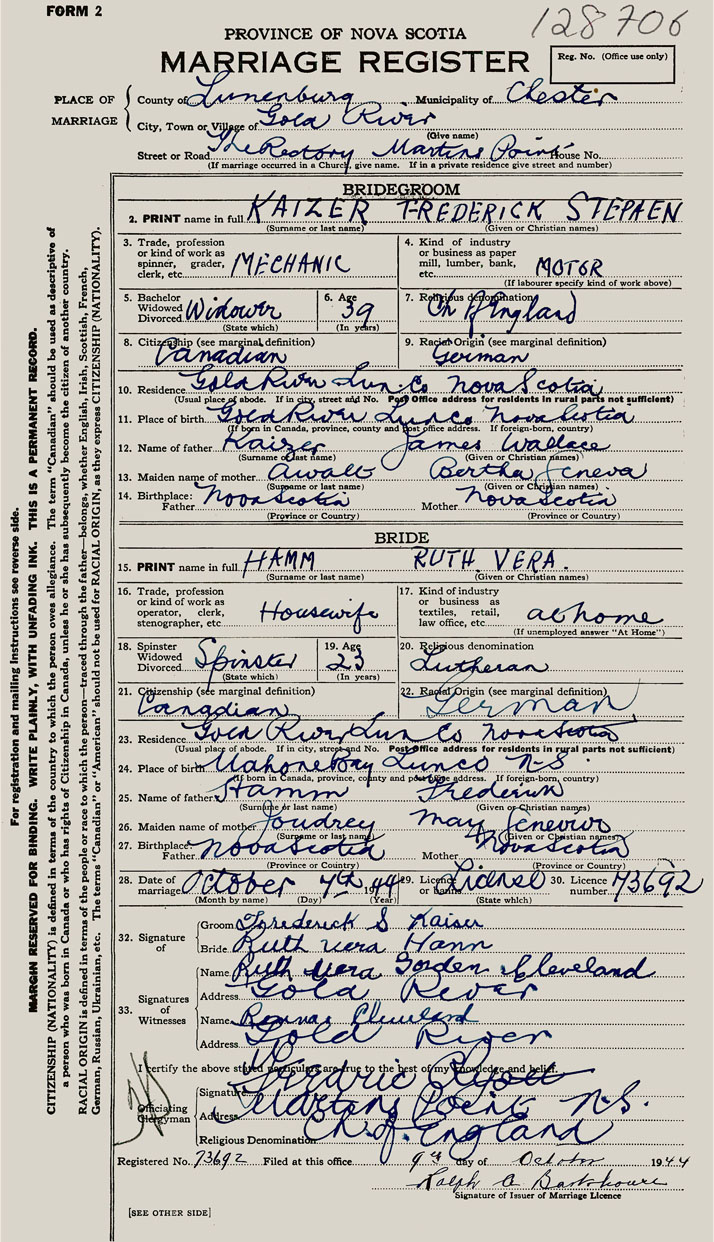 FORM 2
128706
PROVINCE OF NOVA SCOTIA
MARRIAGE REGISTER
Reg. No. (Office use only)
PLACE OF MARRIAGE
County of Lunenburg Municipality of Chester
City, Town or Village of Gold River
(Give name)
Street or Road The Rectory Martins Point House No.
(If marriage occurred in a Church, give name. If in a private residence give street and number)
BRIDEGROOM
2. PRINT name in full KAIZER FREDERICK STEPHEN
(Surname or last name) (Given or Christian names)
3. Trade, profession or kind of work as spinner, grader, clerk, etc. MECHANIC
4. Kind of industry or business as paper mill, lumber, bank, etc. MOTOR
(If labourer specify kind of work above)
5. Bachelor Widowed Divorced Widower
(State which)
6. Age 39
(In years)
7. Religious denomination Ch of England
8. Citizenship (see marginal definition) Canadian
9. Racial Origin (see marginal definition) German
10. Residence Gold River Lun. Co Nova Scotia
(Usual place of abode. If in city, street and No. Post Office address for residents in rural parts not sufficient)
11. Place of birth Gold River Lun Co Nova Scotia
(If born in Canada, province, county and post office address. If foreign-born, country)
12. Name of father Kaizer James Wallace
(Surname or last name) (Given or Christian names)
13. Maiden name of mother Awalt Bertha Jeneva
(Surname or last name) (Given or Christian names)
14. Birthplace: Father Nova Scotia Mother Nova Scotia
(Province or Country) (Province or Country)
BRIDE
15. PRINT name in full HAMM RUTH VERA.
(Surname or last name) (Given or Christian names)
16. Trade, profession or kind of work as operator, clerk, stenographer, etc. Housewife
17. Kind of industry or business as textiles, retail, law office, etc. at home
(If unemployed answer "At Home")
18. Spinster Widowed Divorced Spinster
(State which)
19. Age 23
(In years)
20. Religious denomination Lutheran
21. Citizenship (see marginal definition) Canadian
22. Racial Origin (see marginal definition) German
23. Residence Gold River Lun Co Nova Scotia
(Usual place of abode. If in city, street and No. Post Office address for residents in rural parts not sufficient)
24. Place of birth Mahone Bay Lun Co N-S.
(If born in Canada, province, county and post office address. If foreign-born, country)
25. Name of father Hamm Frederick
(Surname or last name) (Given or Christian names)
26. Maiden name of mother Joudrey May
(Surname or last name) (Given or Christian names)
27. Birthplace: Father Nova Scotia Mother Nova Scotia
(Province or Country) (Province or Country)
28. Date of marriage October 7th 1944
(Month by name) (Day) (Year)
29. Licence or banns
(State which)
30. Licence number 73692
32. Signature of
Groom Frederick S Kaiser
Bride Ruth Vera Hamm
33. Signatures of Witnesses
Name Gorden Cleveland
Address Gold River
Name Cleveland
Address Gold River
I certify the above stated particulars are true to the best of my knowledge and belief.
Officiating Clergyman
Signature
Address Martins Point N.S.
Religious Denomination Ch. of England
Registered No. 73692 Filed at this office 9th day of October 1944
Ralph A
Signature of Issuer of Marriage Licence
[SEE OTHER SIDE]
For registration and mailing instructions see reverse side.
MARGIN RESERVED FOR BINDING. WRITE PLAINLY, WITH UNFADING INK. THIS IS A PERMANENT RECORD.
CITIZENSHIP (NATIONALITY) is defined in terms of the country to which the person owes allegiance. The term "Canadian" should be used as descriptive of
a person who was born in Canada or who has rights of Citizenship in Canada, unless he or she has subsequently become the citizen of another country.
RACIAL ORIGIN is defined in terms of the people or race to which the person—traced through the father—belongs, whether English, Irish, Scottish, French,
German, Russian, Ukrainian, etc. The terms "Canadian" or "American" should not be used for RACIAL ORIGIN, as they express CITIZENSHIP (NATIONALITY).